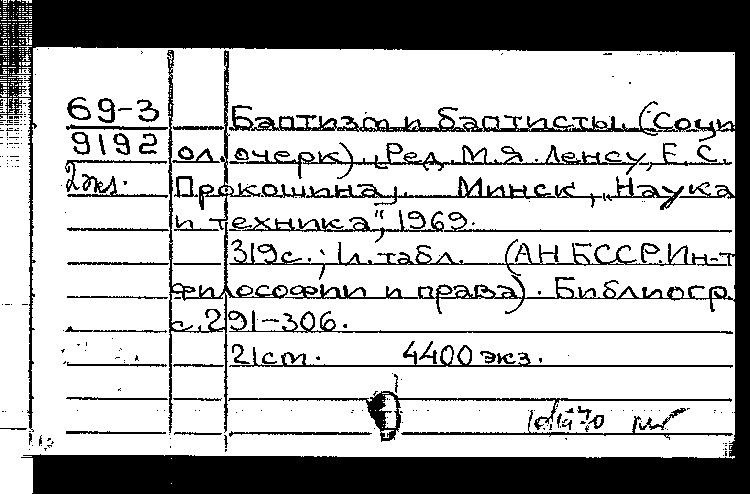 69-3
9192
2 экз.
Баптизм и баптисты. (Соци
ол. очерк). [Ред. М.Я. Ленсу, Е.С.
Прокошина]. Минск, „Наука
и техника", 1969.
319 с.; 1 л. табл. (АН БССР. Ин-т
философии и права). Библиогр.
с. 291-306.
21 cm. 4400 экз.